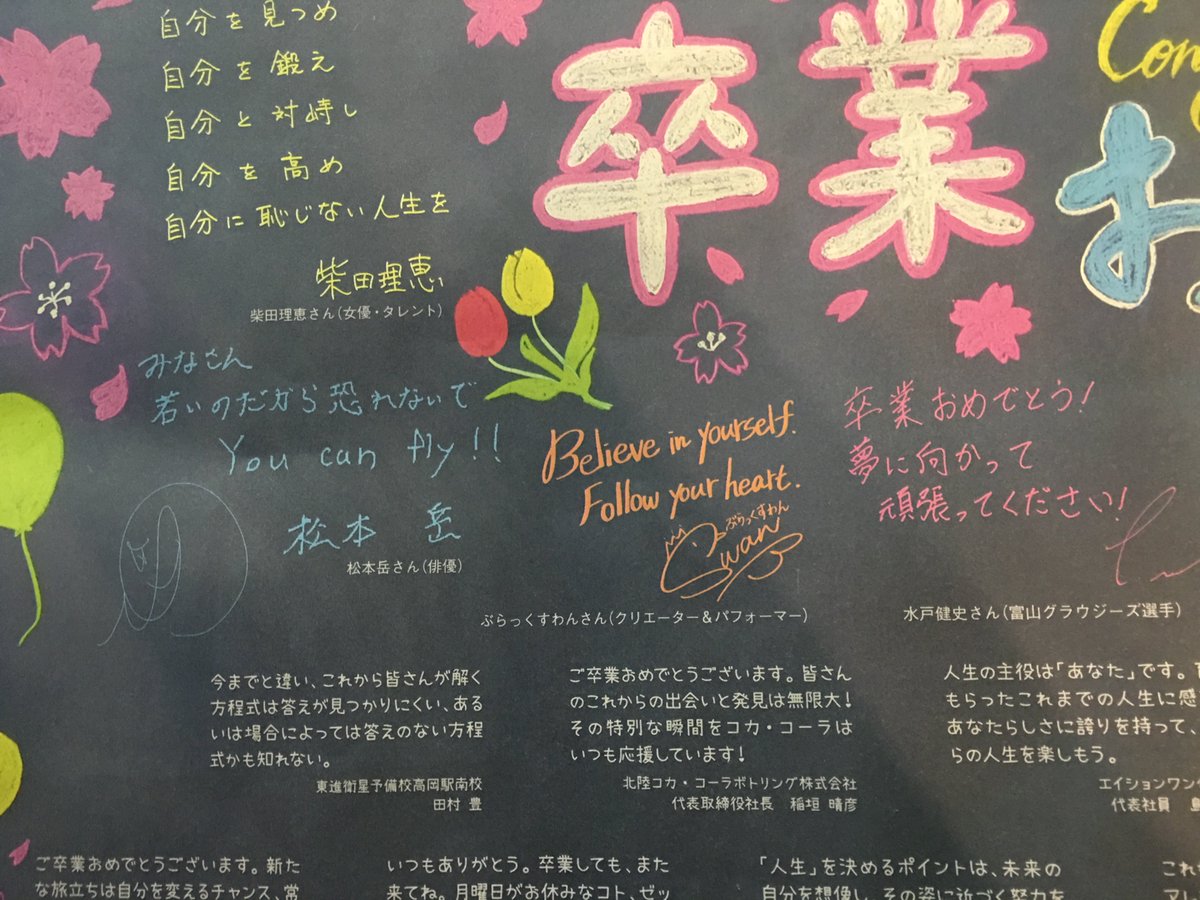 自分を見つめ
自分を鍛え
自分と対峙し
自分を高め
自分に恥じない人生を
柴田理恵
柴田理恵さん(女優・タレント)
卒業お
Con
みなさん
若いのだから恐れないで
You can fly!!
松本 岳
松本岳さん(俳優)
Believe in yourself.
Follow your heart.
ぶらっくすわん
Swan
ぶらっくすわんさん(クリエーター&パフォーマー)
卒業おめでとう!
夢に向かって
頑張ってください!
水戸健史さん(富山グラウジーズ選手)
今までと違い、これから皆さんが解く
方程式は答えが見つかりにくい、ある
いは場合によっては答えのない方程
式かも知れない。
東進衛星予備校高岡駅南校
田村 豊
ご卒業おめでとうございます。皆さん
のこれからの出会いと発見は無限大!
その特別な瞬間をコカ・コーラは
いつも応援しています!
北陸コカ・コーラボトリング株式会社
代表取締役社長 稲垣 晴彦
人生の主役は「あなた」です。
もらったこれまでの人生に感
あなたらしさに誇りを持って、
らの人生を楽しもう。
エイションワン
代表社員
ご卒業おめでとうございます。新た
な旅立ちは自分を変えるチャンス、常
いつもありがとう。卒業しても、また
来てね。月曜日がお休みなコト、ゼッ
「人生」を決めるポイントは、未来の
自分を想像し、その姿に近づく努力を
これ